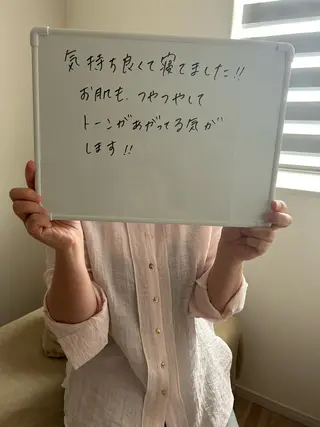 気持ち良くて寝てました!!
お肌も、つやつやして
トーンがあがってる気が
します!!